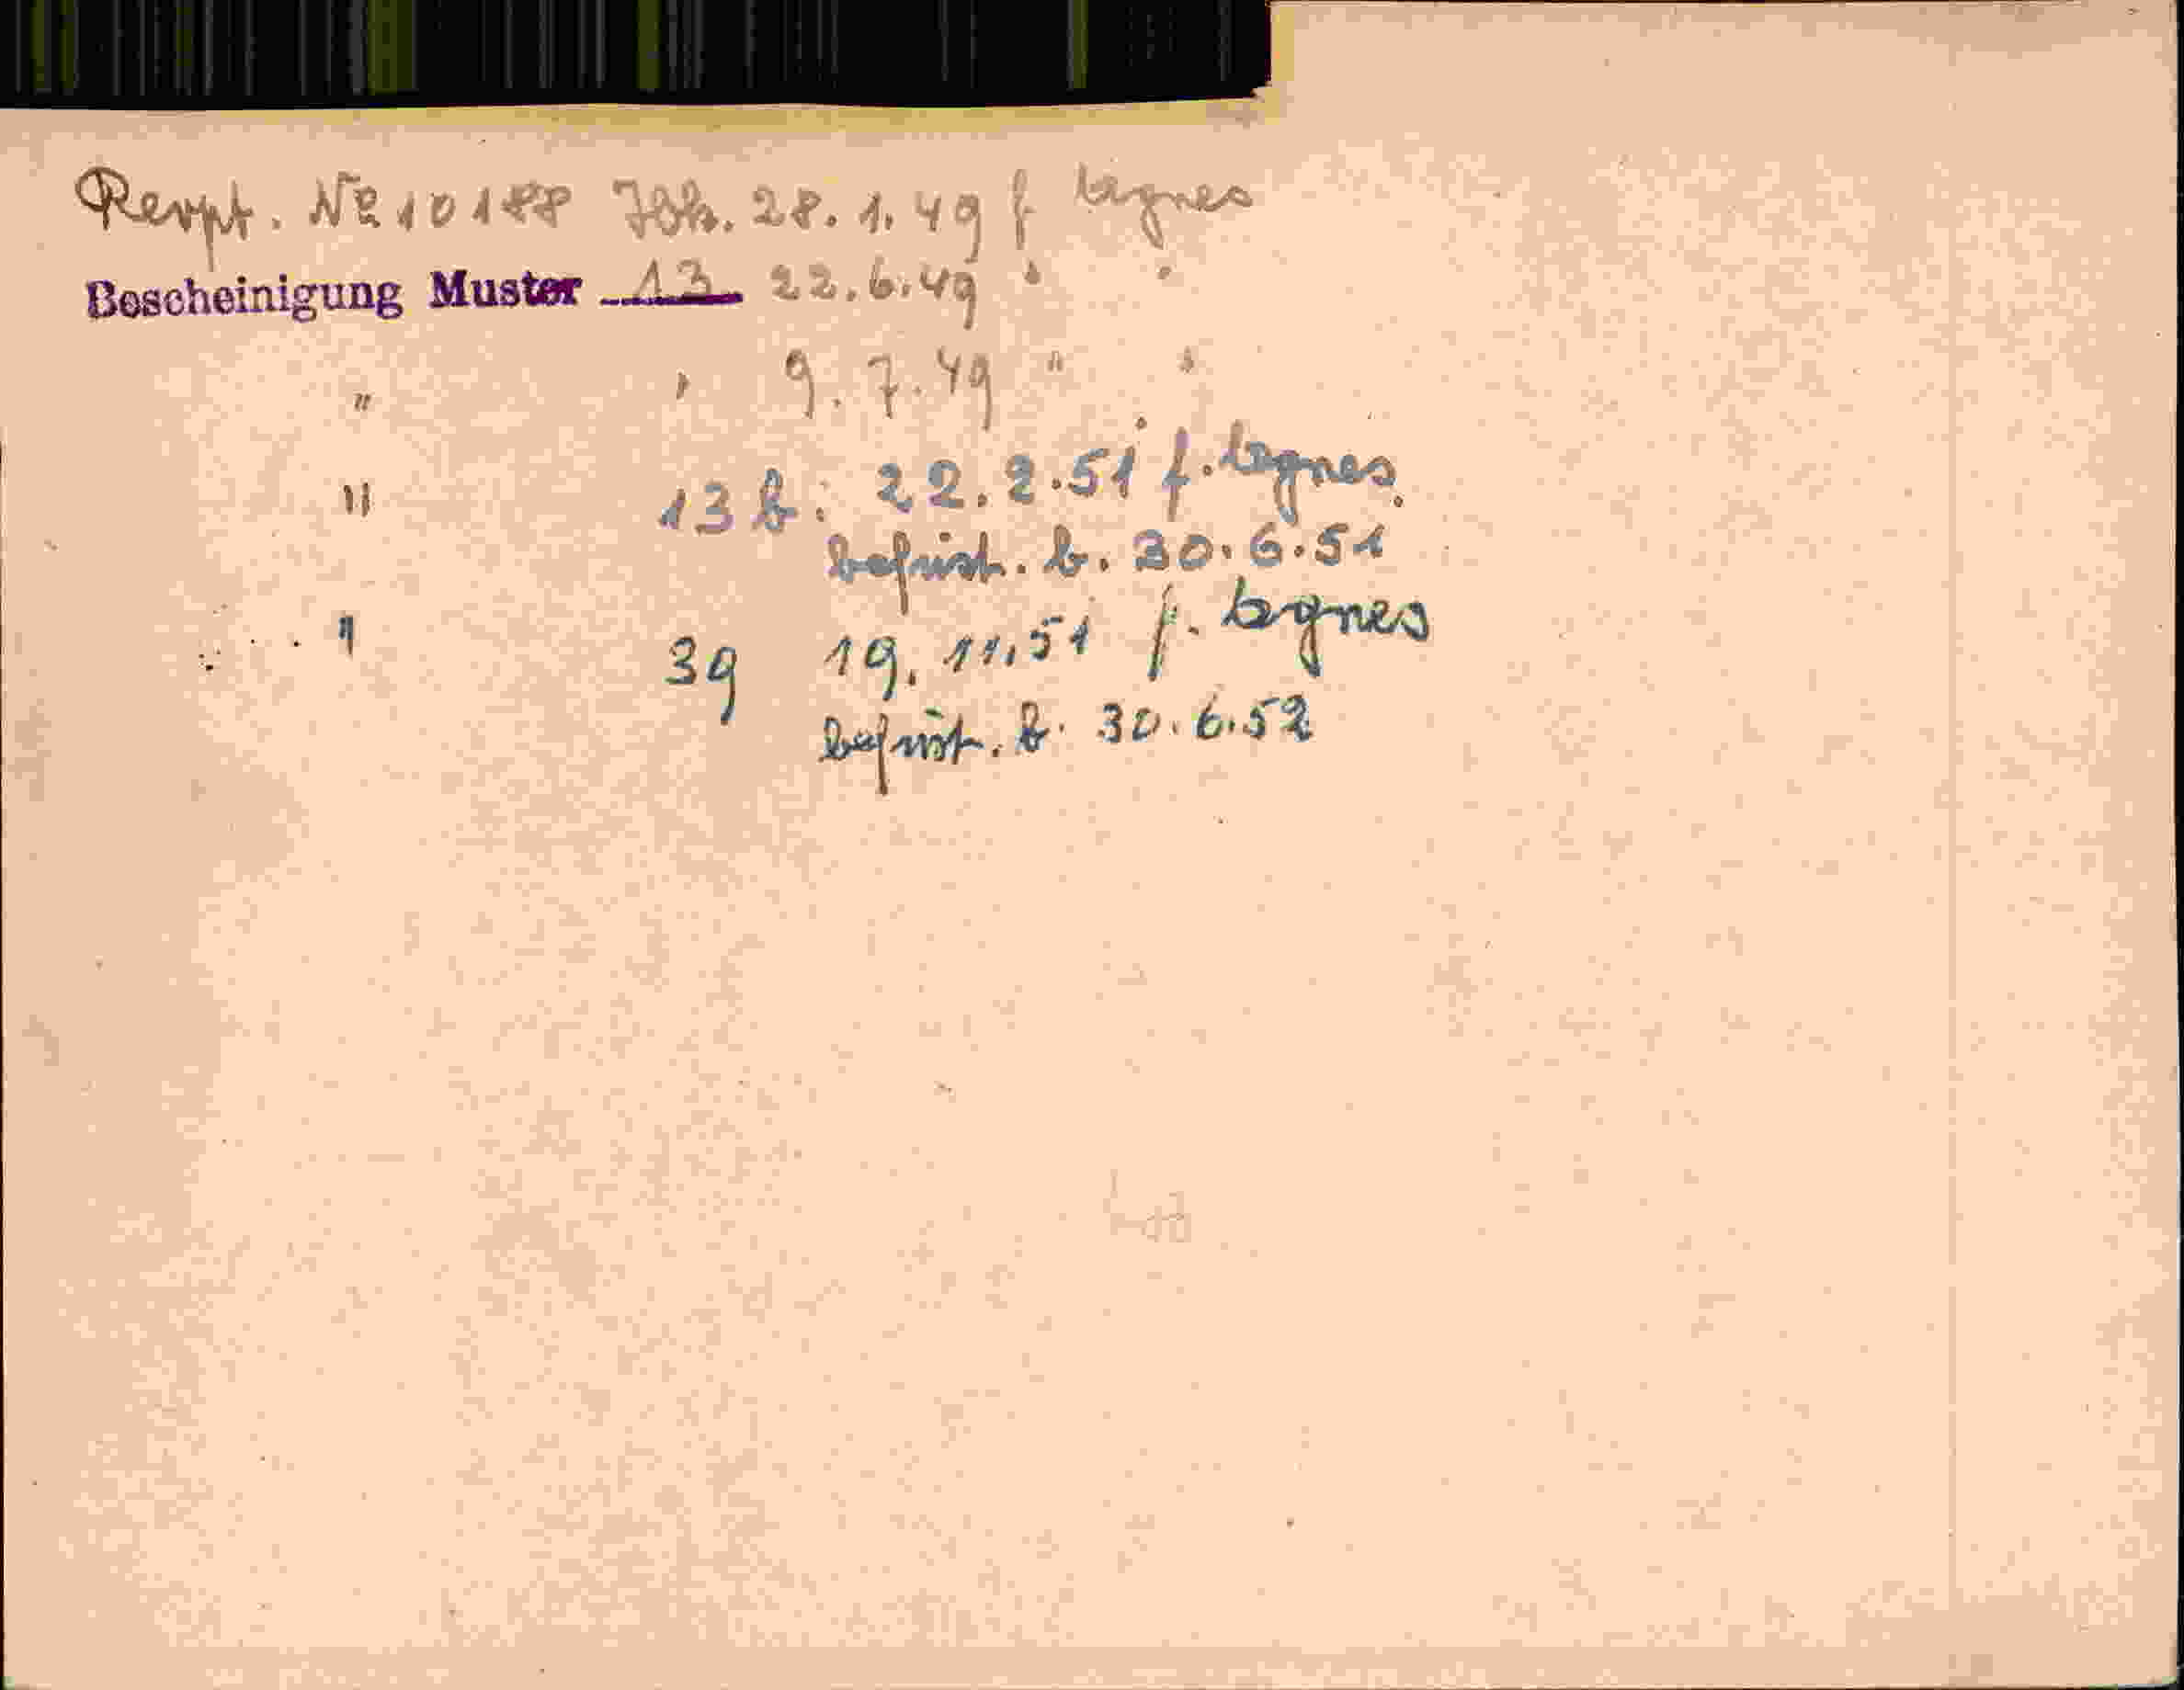 Rewpt. № 10188 Joh. 28.1.49 f Agnes
Bescheinigung Muster 13 22.6.49 " "
" " 9.7.49 " "
" 13 b. 22.2.51 f. Agnes.
befrist. b. 30.6.51
" 39 19.11.51 f. Agnes
befrist. b. 30.6.52